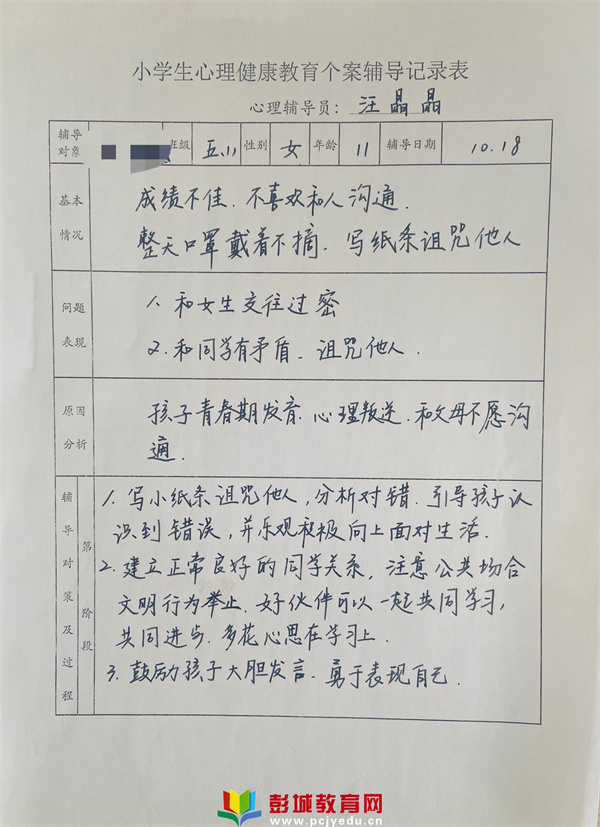 小学生心理健康教育个案辅导记录表
心理辅导员：汪晶晶
辅导对象 班级 五.11 性别 女 年龄 11 辅导日期 10.18
基本情况
成绩不佳.不喜欢和人沟通.
整天口罩戴着不摘.写纸条诅咒他人
问题表现
1.和女生交往过密
2.和同学有矛盾.诅咒他人.
原因分析
孩子青春期发育.心理叛逆.和父母不愿沟
通.
辅导对策及过程
第 阶段
1.写小纸条诅咒他人,分析对错.引导孩子认
识到错误,并乐观积极向上面对生活.
2.建立正常良好的同学关系,注意公共场合
文明行为举止.好伙伴可以一起共同学习,
共同进步.多花心思在学习上.
3.鼓励孩子大胆发言.勇于表现自己.
彭城教育网
www.pcjyedu.cn